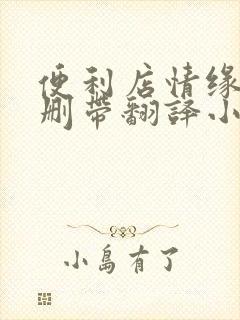 便利店情缘
删带翻译小
小岛有了